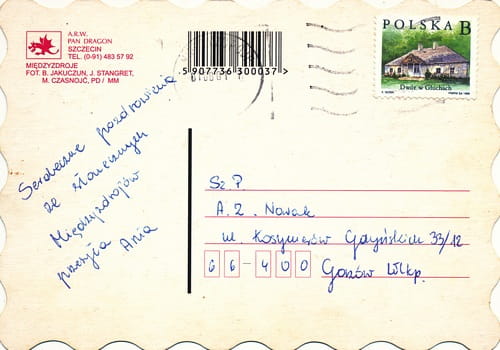 A.R.W.
PAN DRAGON
SZCZECIN
TEL. (0-91) 483 57 92
MIĘDZYZDROJE
FOT. B. JAKUCZUN, J. STANGRET,
M. CZASNOJĆ, PD / MM
5 907736 300037 >
POLSKA B
Dwór w Głuchach
Serdeczne pozdrowienia
ze słonecznych
Międzyzdrojów
przesyła Ania
Sz. P.
A. Z. Nowak
ul. Kosynierów Gdyńskich 33/12
66-400 Gorzów Wlkp.